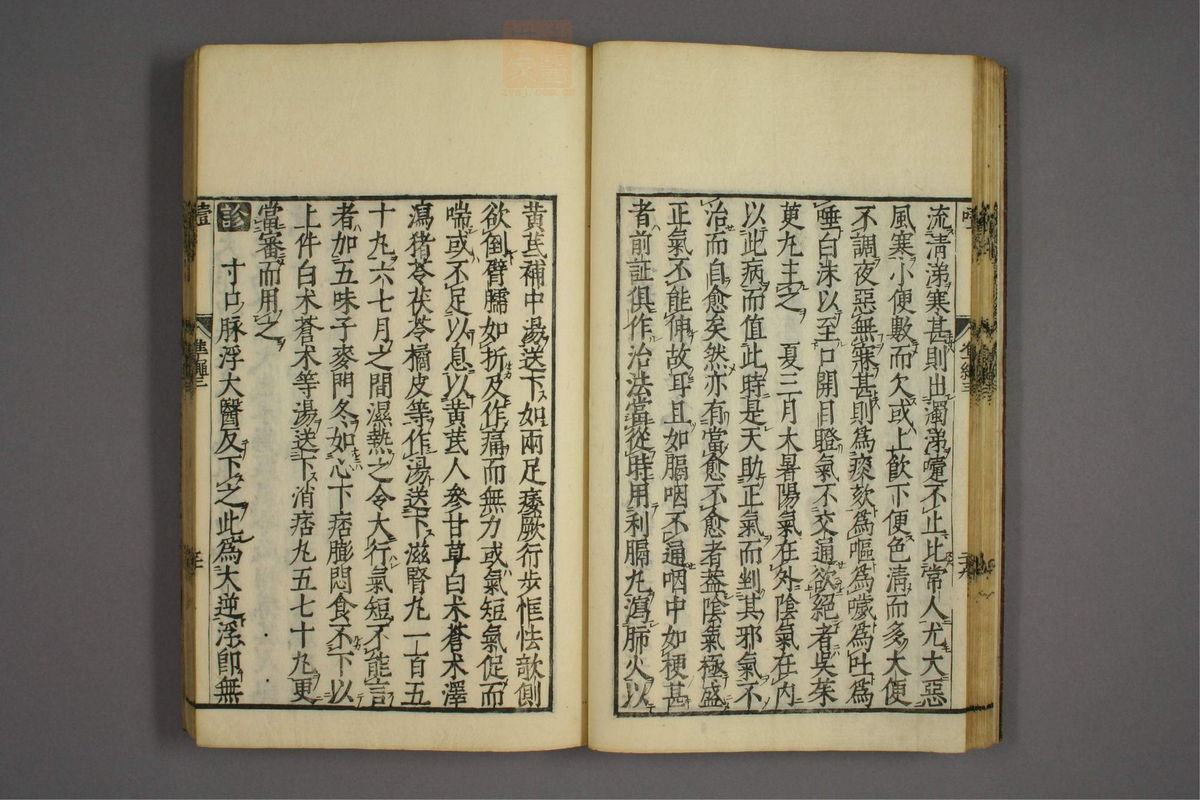 流清涕寒甚則出濁涕嚏不止比常人尤大惡
風寒小便數而欠或上飲下便色清而多大便
不調夜惡無寐甚則爲痰欬爲嘔爲噦爲吐爲
唾白沫以至口開目瞪氣不交通欲絕者吳茱
萸丸主之　夏三月大暑陽氣在外陰氣在内
以此病而値此時是天助正氣而剉其邪氣不
治而自愈矣然亦有當愈不愈者蓋陰氣極盛
正氣不能伸故耳且如膈咽不通咽中如梗甚
者前証俱作治法當從時用利膈丸瀉肺火以
黄芪補中湯送下如兩足痿厥行步恇怯欹側
欲倒臂臑如折及作痛而無力或氣短氣促而
喘或不足以息以黄芪人參甘草白术蒼术澤
瀉猪苓茯苓橘皮等作湯送下滋腎丸一百五
十丸六七月之間濕熱之令大行氣短不能言
者如五味子麥門冬如心下痞膨悶食不下以
上件白术蒼术等湯送下消痞丸五七十丸更
當審而用之
診　寸口脉浮大醫反下之此爲大逆浮即無